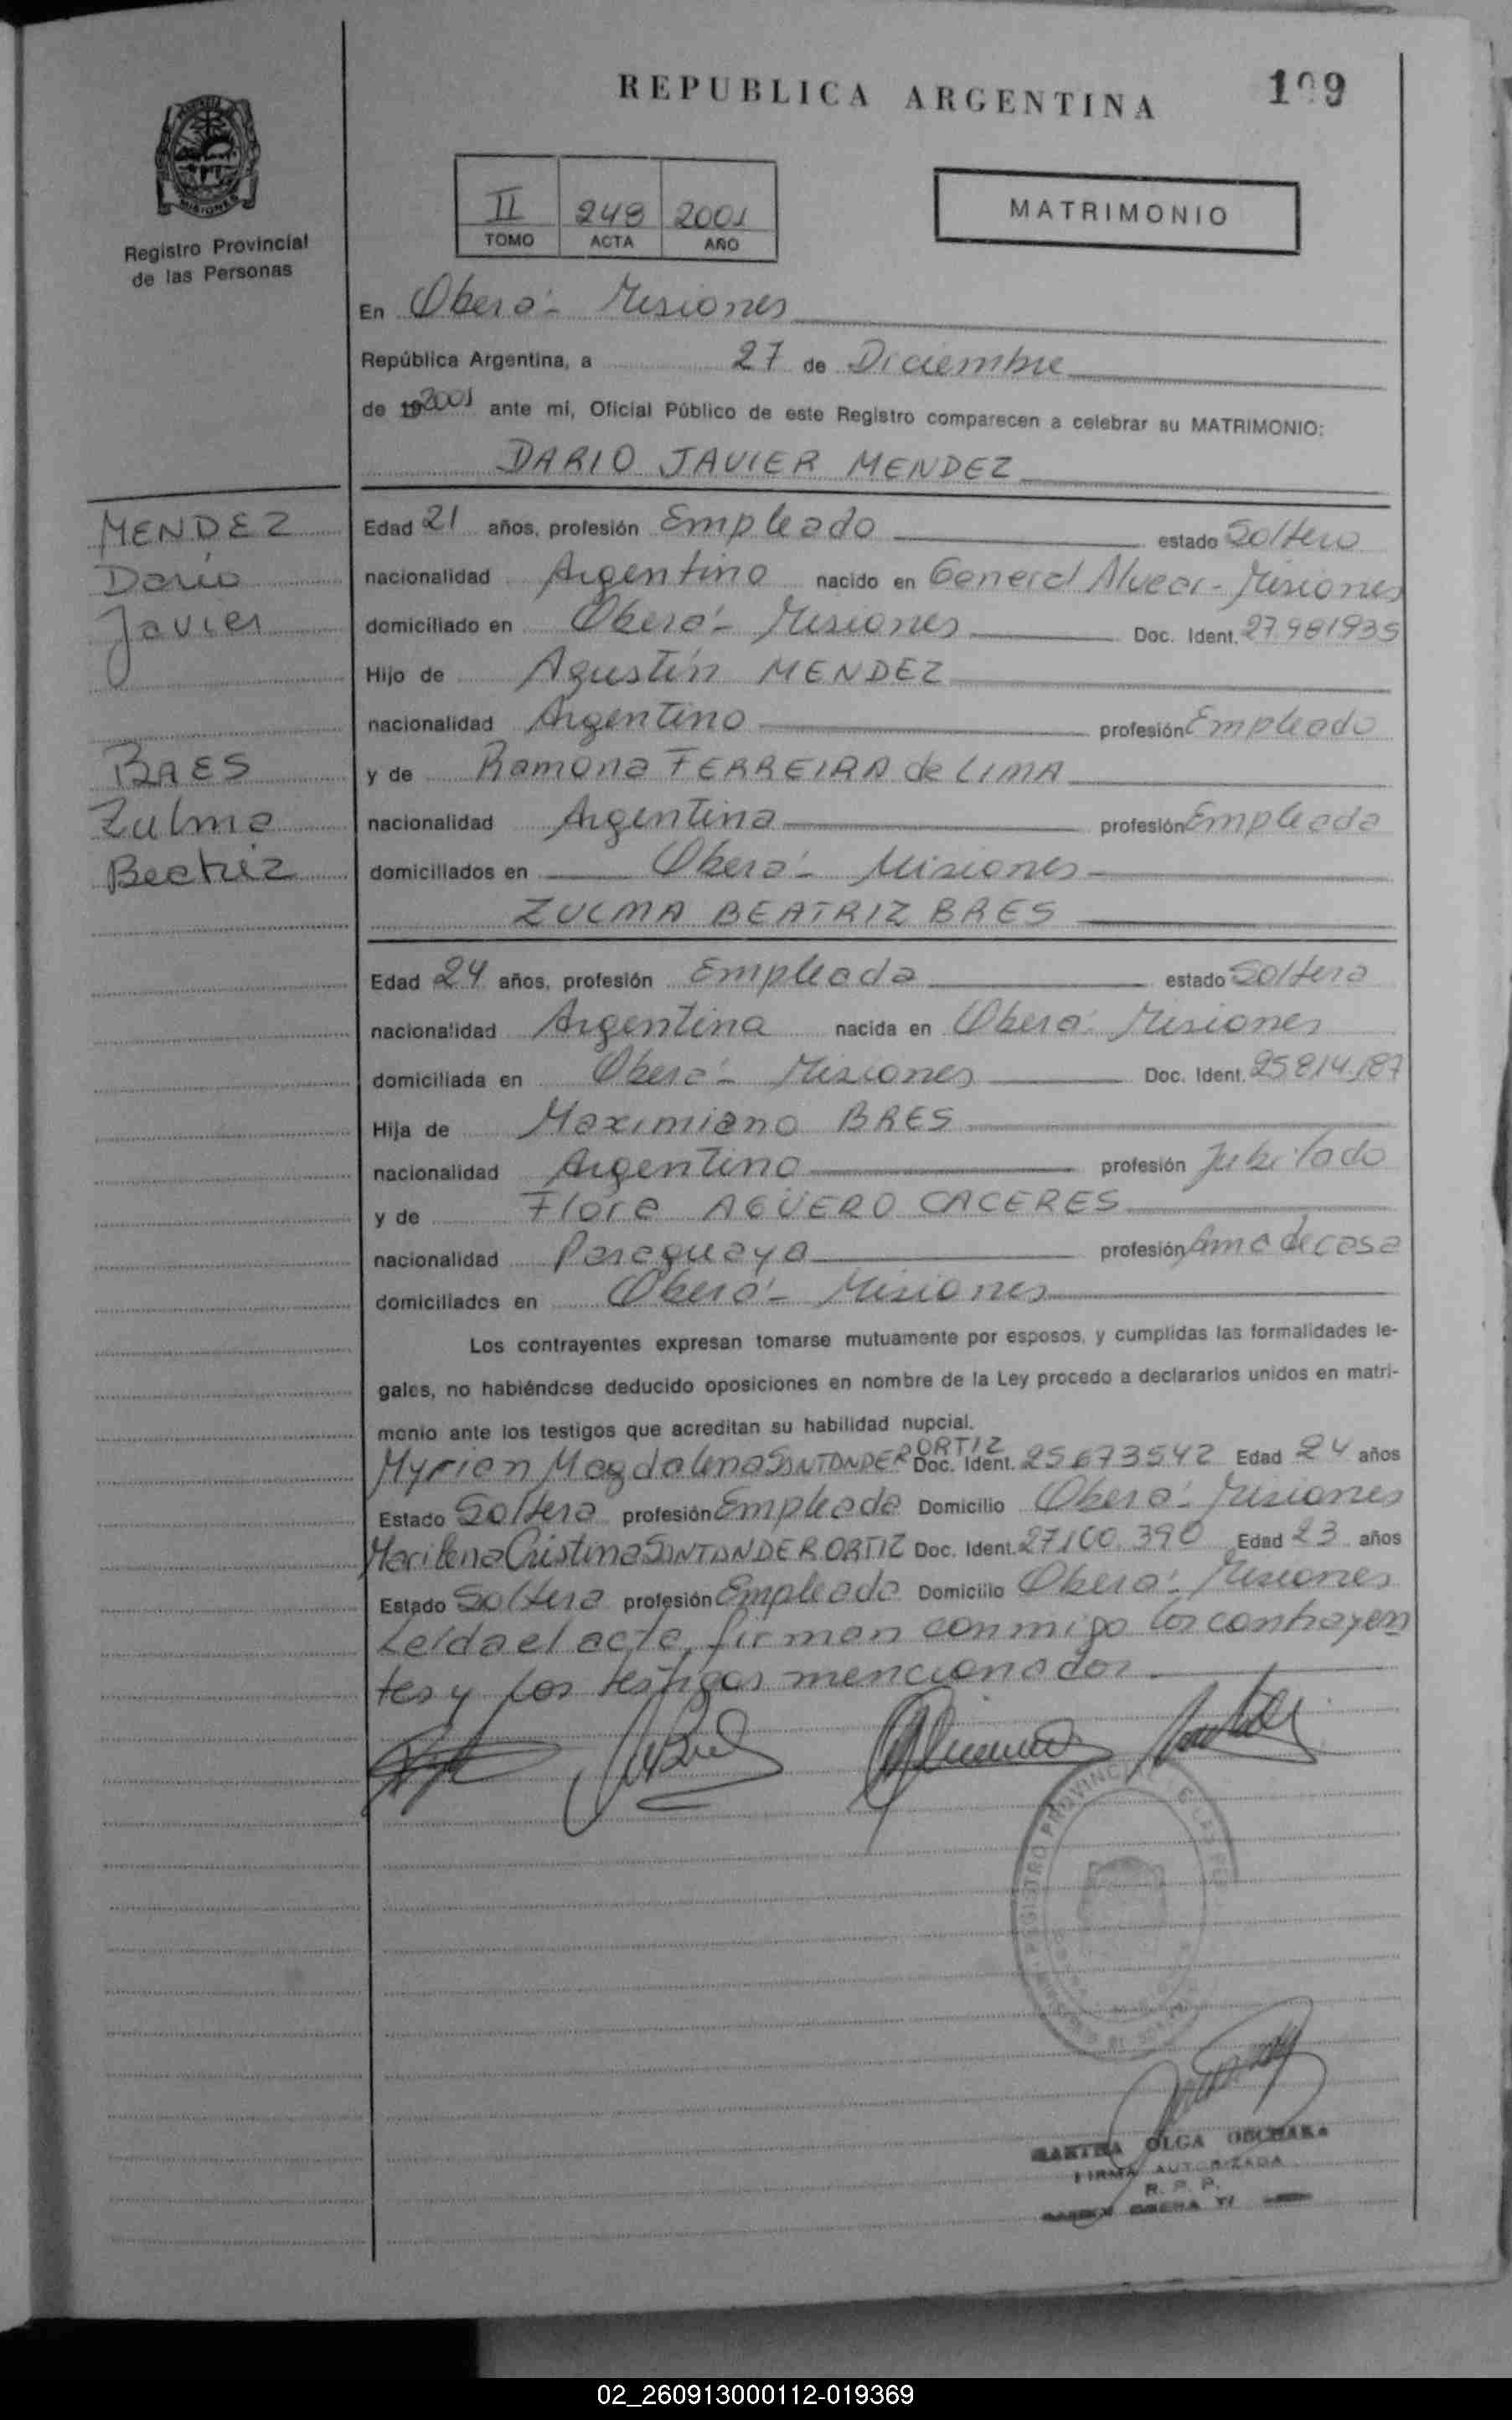 REPUBLICA ARGENTINA
MISIONES
Registro Provincial
de las Personas
II 248 2001
TOMO ACTA AÑO
MATRIMONIO
En Oberá - Misiones
República Argentina, a 27 de Diciembre
de 19 2001 ante mi, Oficial Público de este Registro comparecen a celebrar su MATRIMONIO:
DARIO JAVIER MENDEZ
MENDEZ
Dario
Javier
Edad 21 años, profesión Empleado estado Soltero
nacionalidad Argentino nacido en General Alvear - Misiones
domiciliado en Oberá - Misiones Doc. Ident. 27.981935
Hijo de Agustín MENDEZ
nacionalidad Argentino profesión Empleado
y de Ramona FERREIRA de LIMA
nacionalidad Argentina profesión Empleada
domiciliados en Oberá - Misiones
BRES
Zulma
Beatriz
ZULMA BEATRIZ BRES
Edad 24 años, profesión Empleada estado Soltera
nacionalidad Argentina nacida en Oberá - Misiones
domiciliada en Oberá - Misiones Doc. Ident. 25814.187
Hija de Maximiano BRES
nacionalidad Argentino profesión Jubilado
y de Flora AGÜERO CACERES
nacionalidad Paraguaya profesión Ama de casa
domiciliados en Oberá - Misiones
Los contrayentes expresan tomarse mutuamente por esposos, y cumplidas las formalidades le-
gales, no habiéndose deducido oposiciones en nombre de la Ley procedo a declararlos unidos en matri-
monio ante los testigos que acreditan su habilidad nupcial.
Myrian Magdalena SANTANDER ORTIZ Doc. Ident. 25673542 Edad 24 años
Estado Soltera profesión Empleada Domicilio Oberá - Misiones
Marilena Cristina SANTANDER ORTIZ Doc. Ident. 27100.390 Edad 23 años
Estado Soltera profesión Empleada Domicilio Oberá - Misiones
Leída el acta, firman conmigo los contrayen
tes y los testigos mencionados
REGISTRO PROVINCIAL
OLGA
FIRMA AUTORIZADA
R. P. P.
02_260913000112-019369